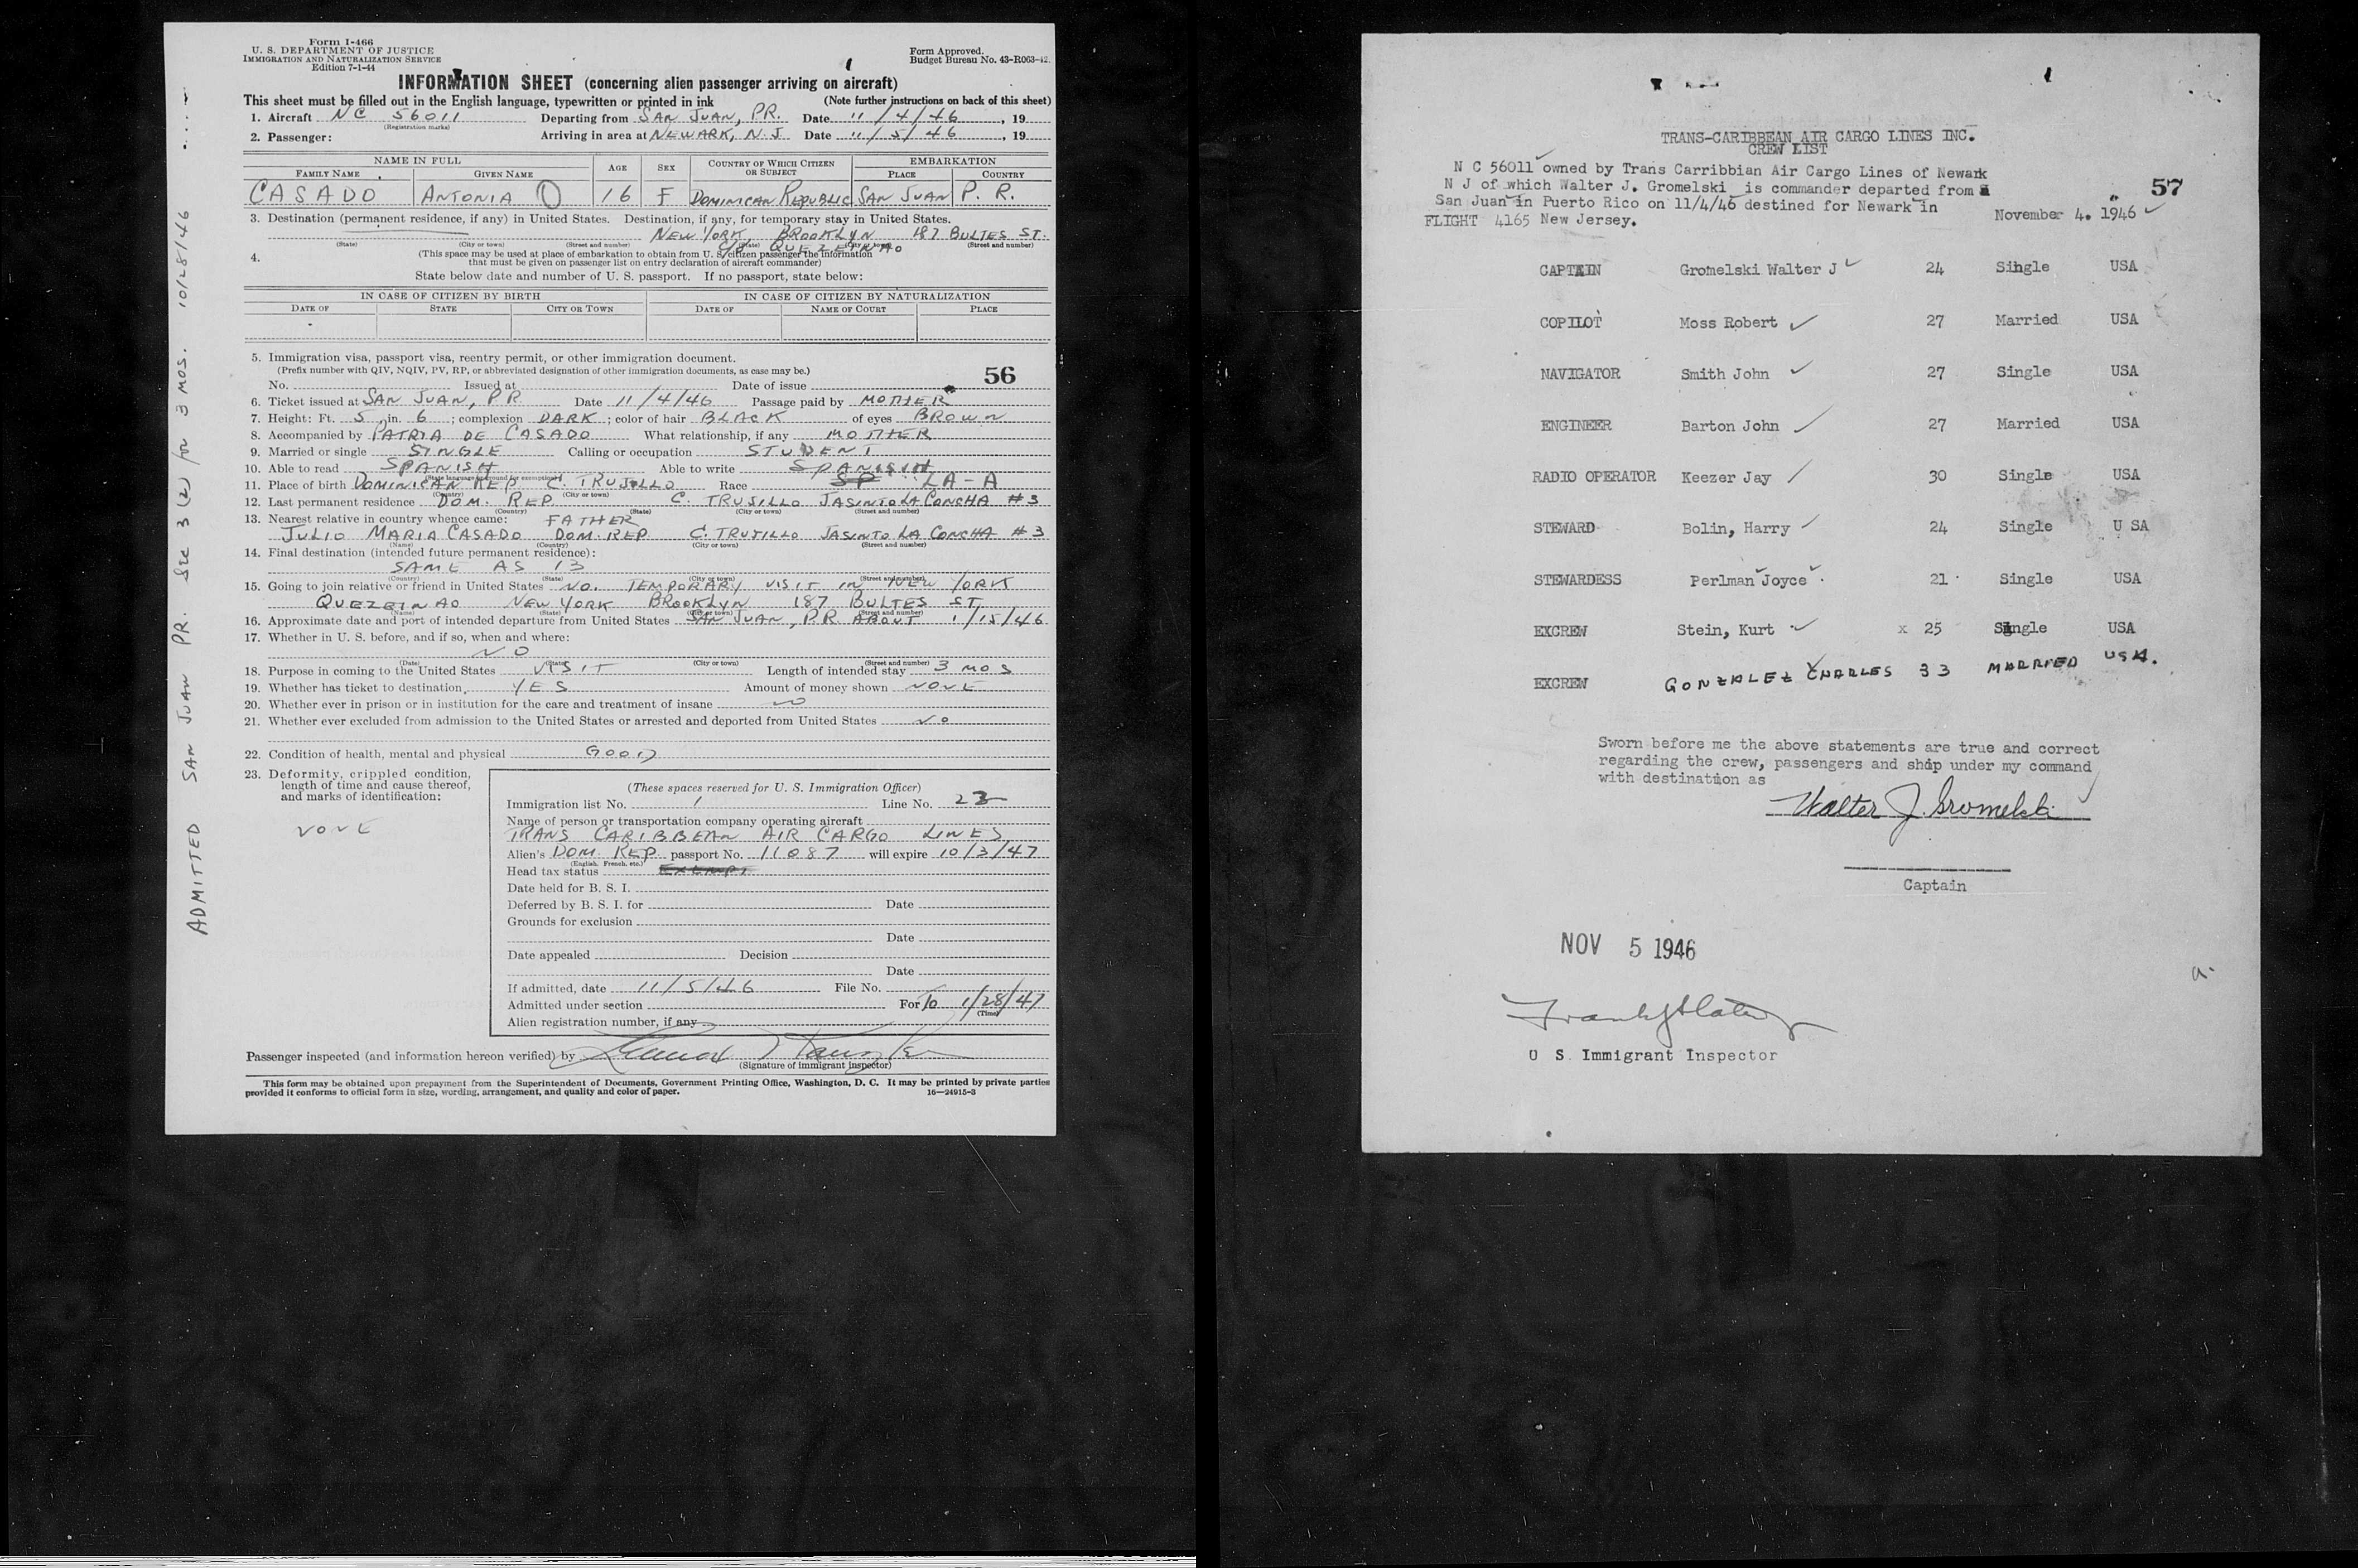 Form I-466
U. S. DEPARTMENT OF JUSTICE
IMMIGRATION AND NATURALIZATION SERVICE
Edition 7-1-44
Form Approved.
Budget Bureau No. 43-R063-42.
INFORMATION SHEET (concerning alien passenger arriving on aircraft)
This sheet must be filled out in the English language, typewritten or printed in ink (Note further instructions on back of this sheet)
1. Aircraft NC 56011 Departing from SAN JUAN, PR. Date 11/4/46, 19
(Registration marks)
2. Passenger: Arriving in area at NEWARK, N.J. Date 11/5/46, 19
NAME IN FULL AGE SEX COUNTRY OF WHICH CITIZEN OR SUBJECT EMBARKATION
FAMILY NAME GIVEN NAME PLACE COUNTRY
CASADO ANTONIA 1 16 F DOMINICAN REPUBLIC SAN JUAN P. R.
3. Destination (permanent residence, if any) in United States. Destination, if any, for temporary stay in United States.
NEW YORK BROOKLYN 187 BULTES ST.
(State) (City or town) (Street and number) (State) (City or town) (Street and number)
c/o
4. (This space may be used at place of embarkation to obtain from U. S. citizen passenger the information
that must be given on passenger list on entry declaration of aircraft commander)
State below date and number of U. S. passport. If no passport, state below:
IN CASE OF CITIZEN BY BIRTH IN CASE OF CITIZEN BY NATURALIZATION
DATE OF STATE CITY OR TOWN DATE OF NAME OF COURT PLACE
5. Immigration visa, passport visa, reentry permit, or other immigration document.
(Prefix number with QIV, NQIV, PV, RP, or abbreviated designation of other immigration documents, as case may be.)
56
No. Issued at Date of issue
6. Ticket issued at SAN JUAN, PR Date 11/4/46 Passage paid by MOTHER
7. Height: Ft. 5, in. 6; complexion DARK; color of hair BLACK of eyes BROWN
8. Accompanied by PATRIA DE CASADO What relationship, if any MOTHER
9. Married or single SINGLE Calling or occupation STUDENT
10. Able to read SPANISH Able to write SPANISH
(State language or ground for exemption)
11. Place of birth DOMINICAN REP. C. TRUJILLO Race SP LA-A
(Country) (City or town)
12. Last permanent residence DOM. REP. C. TRUJILLO JASINTO LA CONCHA #3
(Country) (State) (City or town) (Street and number)
13. Nearest relative in country whence came: FATHER
JULIO MARIA CASADO DOM. REP C. TRUJILLO JASINTO LA CONCHA #3
(Name) (Country) (City or town) (Street and number)
14. Final destination (intended future permanent residence):
SAME AS 13
(Country) (State) (City or town) (Street and number)
15. Going to join relative or friend in United States NO. TEMPORARY VISIT IN NEW YORK
NEW YORK BROOKLYN 187 BULTES ST
(Name) (State) (City or town) (Street and number)
16. Approximate date and port of intended departure from United States SAN JUAN, PR ABOUT 1/15/46
17. Whether in U. S. before, and if so, when and where:
NO
(Date) (State) (City or town) (Street and number)
18. Purpose in coming to the United States VISIT Length of intended stay 3 MOS
19. Whether has ticket to destination YES Amount of money shown NONE
20. Whether ever in prison or in institution for the care and treatment of insane NO
21. Whether ever excluded from admission to the United States or arrested and deported from United States NO
22. Condition of health, mental and physical GOOD
23. Deformity, crippled condition,
length of time and cause thereof,
and marks of identification:
NONE
(These spaces reserved for U. S. Immigration Officer)
Immigration list No. 1 Line No. 23
Name of person or transportation company operating aircraft
TRANS CARIBBEAN AIR CARGO LINES
Alien's DOM. REP passport No. 11087 will expire 10/3/47
(English, French, etc.)
Head tax status EXEMPT
Date held for B. S. I.
Deferred by B. S. I. for Date
Grounds for exclusion
Date
Date appealed Decision
Date
If admitted, date 11/5/46 File No.
Admitted under section For To 1/28/47
(Time)
Alien registration number, if any
Passenger inspected (and information hereon verified) by
(Signature of immigrant inspector)
This form may be obtained upon prepayment from the Superintendent of Documents, Government Printing Office, Washington, D. C. It may be printed by private parties
provided it conforms to official form in size, wording, arrangement, and quality and color of paper. 16—24915-3
ADMITTED SAN JUAN PR. SEC 3 (2) for 3 MOS. 10/28/46
TRANS-CARIBBEAN AIR CARGO LINES INC.
CREW LIST
N C 56011 owned by Trans Carribbian Air Cargo Lines of Newark
N J of which Walter J. Gromelski is commander departed from
San Juan in Puerto Rico on 11/4/46 destined for Newark in
FLIGHT 4165 New Jersey.
57
November 4. 1946
CAPTAIN Gromelski Walter J 24 Single USA
COPILOT Moss Robert 27 Married USA
NAVIGATOR Smith John 27 Single USA
ENGINEER Barton John 27 Married USA
RADIO OPERATOR Keezer Jay 30 Single USA
STEWARD Bolin, Harry 24 Single U SA
STEWARDESS Perlman Joyce 21 Single USA
EXCREW Stein, Kurt x 25 Single USA
EXCREW GONZALEZ CHARLES 33 MARRIED USA.
Sworn before me the above statements are true and correct
regarding the crew, passengers and ship under my command
with destination as
Walter J Gromelski
Captain
NOV 5 1946
U S Immigrant Inspector